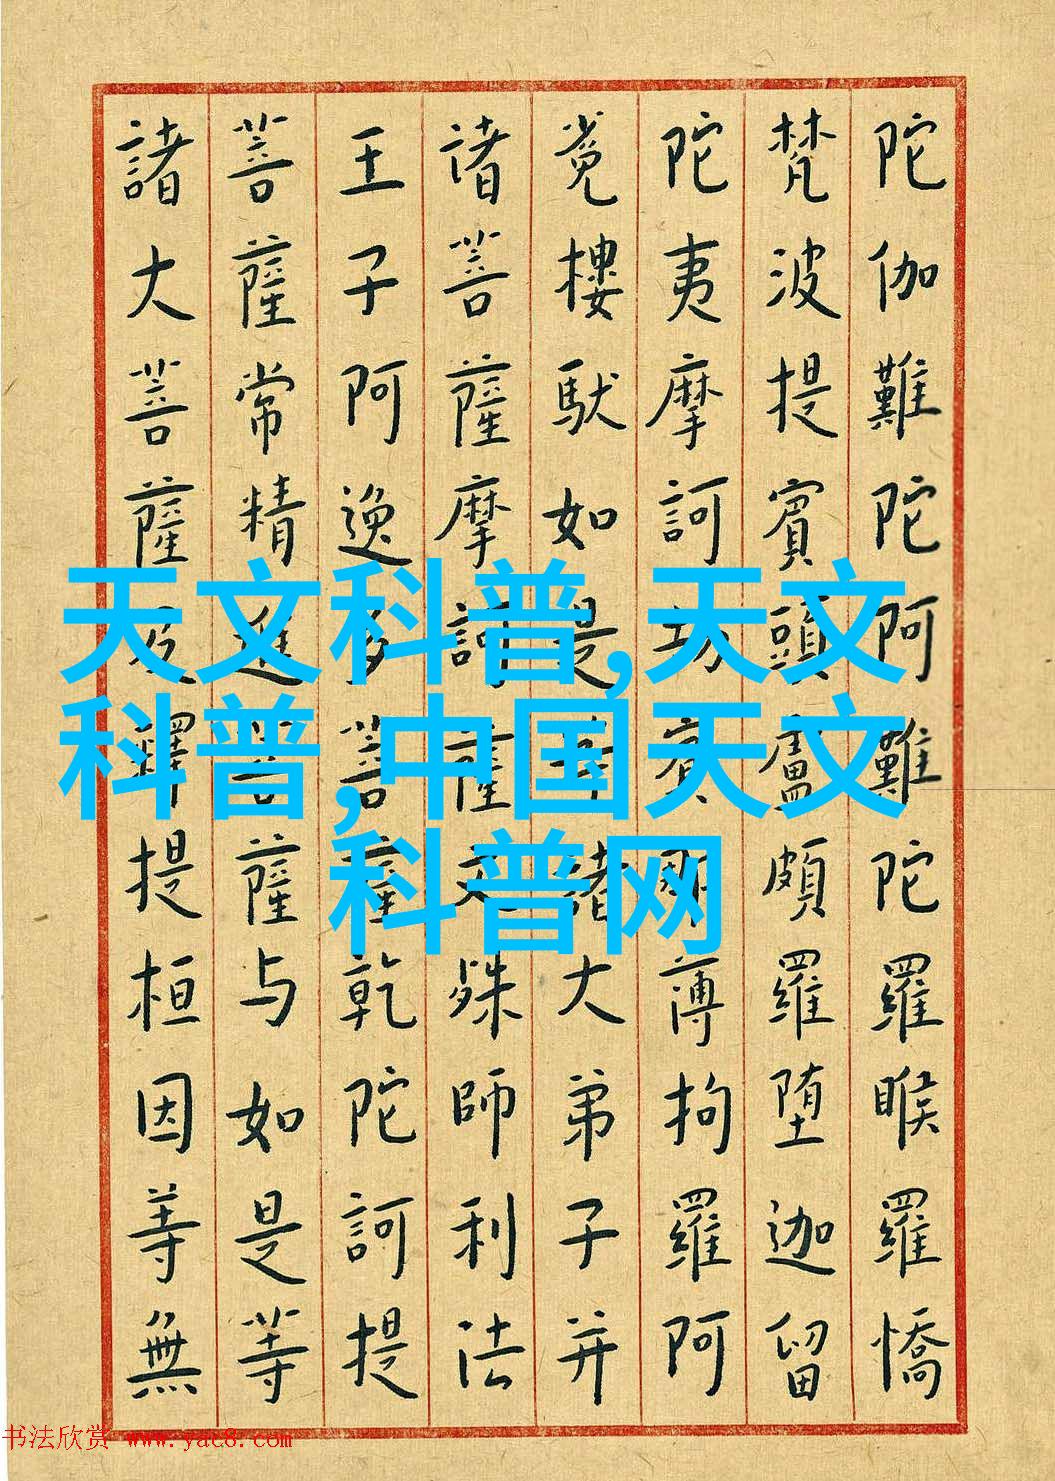 陀伽難陀阿難陀羅睺羅憍
梵波提賓頭盧頗羅堕迦留
陀夷摩訶劫賓那薄拘羅阿
㝹樓馱如是等諸大弟子并
诸菩薩摩訶薩文殊師利法
王子阿逸多菩薩乾陀訶提
菩薩常精進菩薩与如是等
諸大菩薩及釋提桓因等無
天文科普,天文
科普,中国天文
科普网
书法欣赏 www.yac8.com